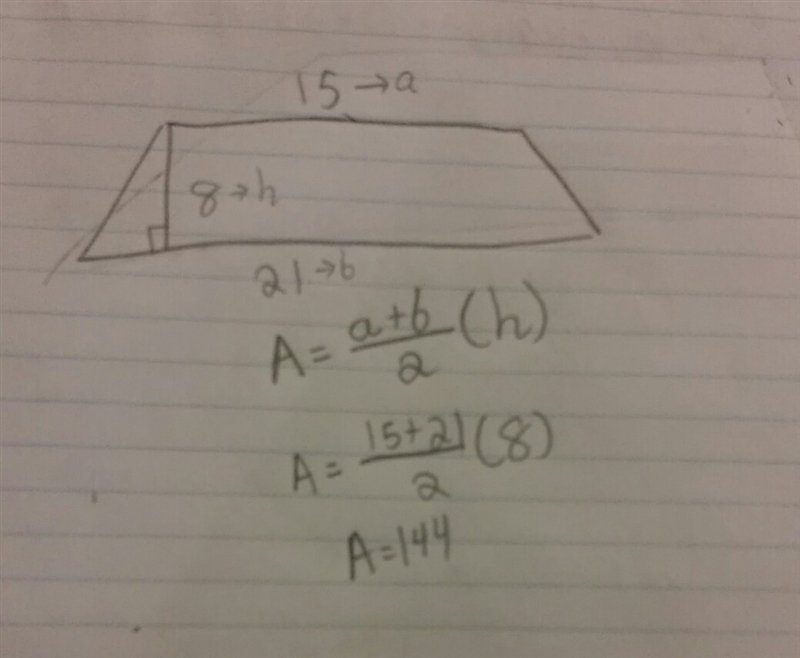 15→a
8→h
21→b
A = a+b/2 (h)
A = 15+21/2 (8)
A=144